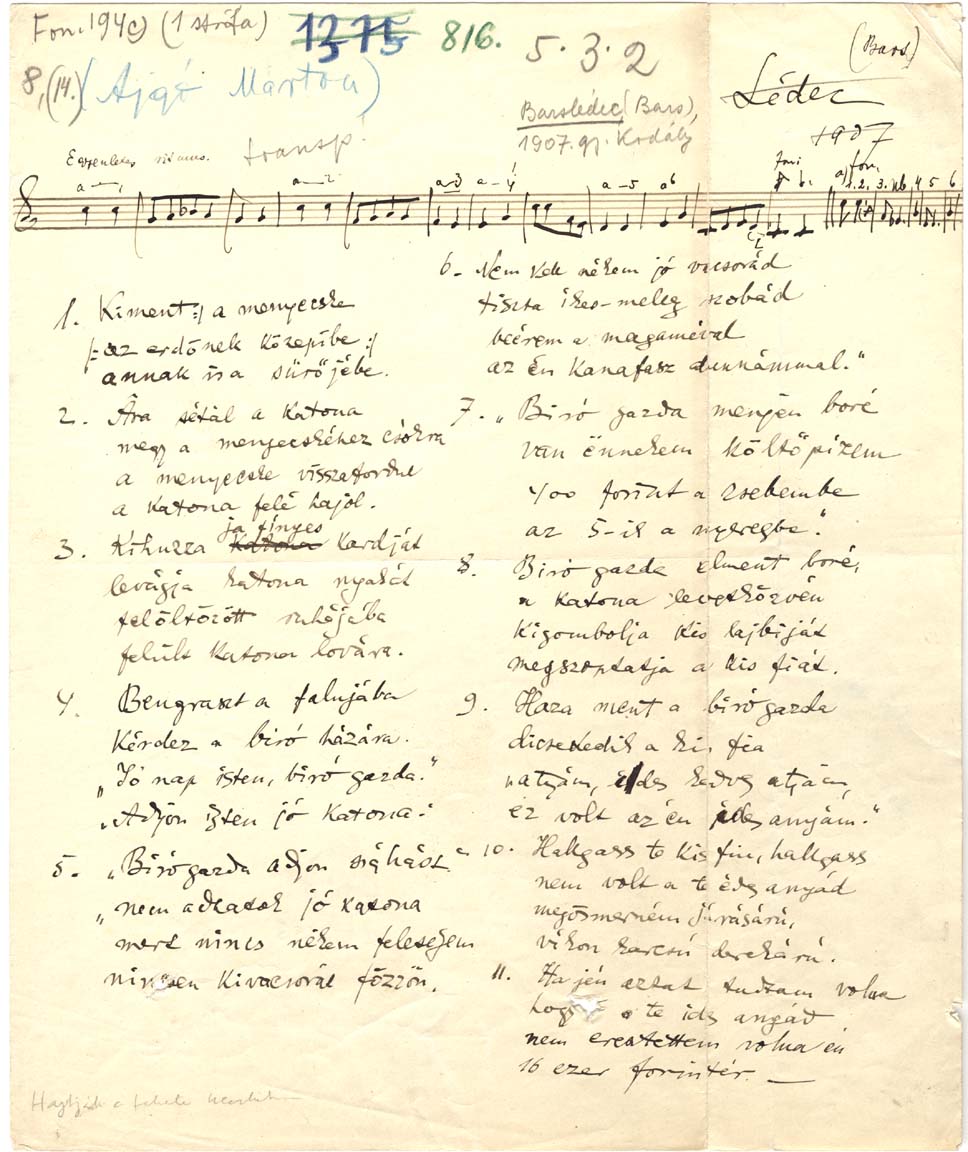 Fon. 194c) (1 strófa) 1375 816. 5. 3. 2 (Bars)
8, (14.) (Ajgó Márton) Lédec
Barslédec (Bars), 1907
1907. gy. Kodály
Egyenletes ritmus. transp.
1. Kiment :/ a menyecske
/: az erdőnek közepibe :/
annak is a sürőjébe.
2. Ára sétál a katona
megy a menyecskéhez csókra
a menyecske visszafordul
a katona felé hajol.
ja fínyes
3. Kihuzza katona kardját
levágja katona nyakát
felöltözött ruhájába
felült katona lovára.
4. Bengraszt a falujába
Kérdez a biró házára.
„Jó nap isten, biró gazda.”
„Adjon isten jó katona.”
5. „Biró gazda adjon száhást
„nem adhatok jó katona
mert nincs nékem feleségem
ninsen ki vacsorát főzzön.
6. Nem kek nékem jó vacsorád
tiszta ékes-meleg szobád
beérem a magaméval
az én kanafasz dunnámmal.“
7. „Biró gazda menjen boré
van ënnekem költőpízem
400 forint a zsebembe
az 5-ik a nyeregbe.“
8. Biró gazda elment boré,
a katona levetközvén
Kigombolja kis lajbiját
megszoptatja a kis fiát.
9. Haza ment a biró gazda
dicsekedik a ki, fia
„atyám, ides kedves atjám,
ez volt az én ides anyám.“
10. Hallgass te kis fiu, hallgass
nem volt a te édes anyád
megösmerném járásárú,
vikon karcsú derekárú.
11. Ha jén aztat tudtam volna
hogy a te ides anyád
nem eresztettem volna én
16 ezer forintér. —